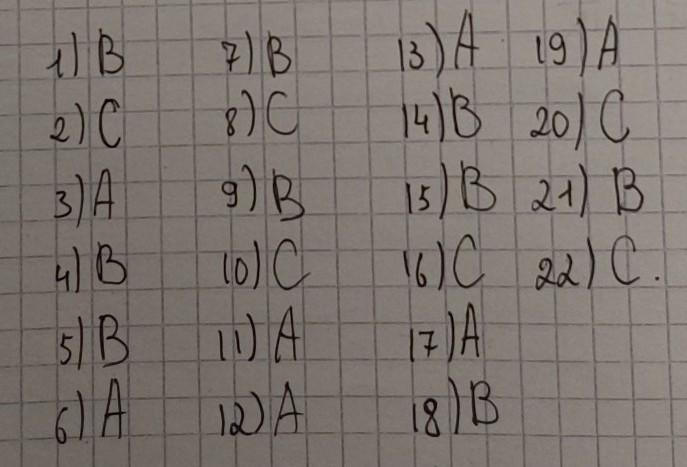 1) B
2) C
3) A
4) B
5) B
6) A
7) B
8) C
9) B
10) C
11) A
12) A
13) A
14) B
15) B
16) C
17) A
18) B
19) A
20) C
21) B
22) C.